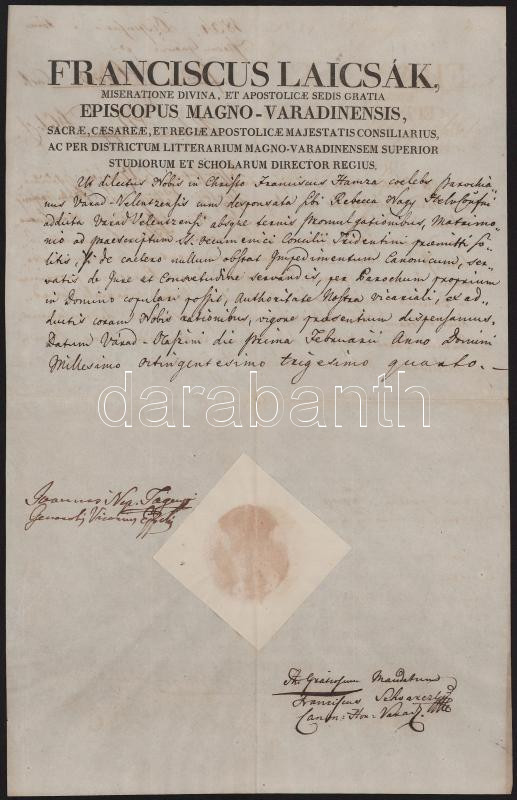 FRANCISCUS LAICSÁK,
MISERATIONE DIVINA, ET APOSTOLICÆ SEDIS GRATIA
EPISCOPUS MAGNO-VARADINENSIS,
SACRÆ, CÆSAREÆ, ET REGIÆ APOSTOLICÆ MAJESTATIS CONSILIARIUS,
AC PER DISTRICTUM LITTERARIUM MAGNO-VARADINENSEM SUPERIOR
STUDIORUM ET SCHOLARUM DIRECTOR REGIUS.
Ut dilectus Nobis in Christo Franciscus Hamza coelebs Parochia„
nus Varad-Velentzensis cum desponsata sibi Rebecca Nagy
addicta Varad Velentzensi absque ternis Promulgationibus, Matrimo„
nio ad praescriptum SS. Oecumenici Concilii Tridentini praemitti so„
litis, si de caetero nullum obstat Impedimentum Canonicum, ser„
vatis de Jure et Consvetudine servandis, per Parochum proprium
in Domino copulari possit, Authoritate Nostra vicariali, ex ad„
ductis coram Nobis rationibus, vigore praesentium dispensamus.
Datum Varad-Olaszini die prima Februarii Anno Domini
Millesimo octingentesimo trigesimo quarto.-
darabanth
Joannes Nep.
Generalis Vicarius
Ad Gratiosum Mandatum
Franciscus
Canon: Hon: Varad.